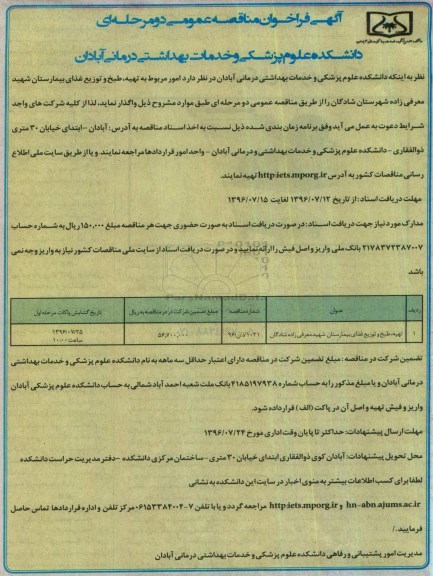 آگهی فراخوان مناقصه عمومی دو مرحله ای
دانشکده علوم پزشکی و خدمات بهداشتی درمانی آبادان
نظر به اینکه دانشکده علوم پزشکی و خدمات بهداشتی درمانی آبادان در نظر دارد امور مربوط به تهیه، طبخ و توزیع غذای بیمارستان شهید
معرفی زاده شهرستان شادگان را از طریق مناقصه عمومی دو مرحله ای طبق موارد مشروح ذیل واگذار نماید، لذا از کلیه شرکت های واجد
شرایط دعوت به عمل می آید وفق برنامه زمان بندی شده ذیل نسبت به اخذ اسناد مناقصه به آدرس: آبادان - ابتدای خیابان ۳۰ متری
ذوالفقاری - دانشکده علوم پزشکی و خدمات بهداشتی و درمانی آبادان - واحد امور قراردادها مراجعه نمایند. و یا از طریق سایت ملی اطلاع
رسانی مناقصات کشور به آدرس http:iets.mporg.ir تهیه نمایند.
مهلت دریافت اسناد: از تاریخ ۱۳۹۶/۰۷/۱۲ لغایت ۱۳۹۶/۰۷/۱۵
مدارک مورد نیاز جهت دریافت اسناد: در صورت دریافت اسناد به صورت حضوری جهت هر مناقصه مبلغ ۱۵۰,۰۰۰ ریال به شماره حساب
۲۱۷۸۳۷۲۳۸۷۰۰۷ بانک ملی واریز و اصل فیش را ارائه نمایید و در صورت دریافت اسناد از سایت ملی مناقصات کشور نیاز به واریز وجه نمی
باشد
ردیف عنوان شماره مناقصه مبلغ تضمین شرکت در در مناقصه به ریال تاریخ گشایش پاکات مرحله اول
۱ تهیه، طبخ و توزیع غذای بیمارستان شهید معرفی زاده شادگان ۱۰۲۱/د/ن/۹۶ ۵۶,۷۰۰,۰۰۰ ۱۳۹۶/۰۷/۲۵
ساعت ۱۰:۰۰
تضمین شرکت در مناقصه: مبلغ تضمین شرکت در مناقصه دارای اعتبار حداقل سه ماهه به نام دانشکده علوم پزشکی و خدمات بهداشتی
درمانی آبادان و یا مبلغ مذکور را به حساب شماره ۴۱۸۵۱۹۷۹۳۸ بانک ملت شعبه احمد آباد شمالی به حساب دانشکده علوم پزشکی آبادان
واریز و فیش تهیه و اصل آن در پاکت (الف) قرار داده شود.
مهلت ارسال پیشنهادات: حداکثر تا پایان وقت اداری مورخ ۱۳۹۶/۰۷/۲۴
محل تحویل پیشنهادات: آبادان کوی ذوالفقاری ابتدای خیابان ۳۰ متری - ساختمان مرکزی دانشکده - دفتر مدیریت حراست دانشکده
لطفا برای کسب اطلاعات بیشتر به منوی اخبار در سایت این دانشکده به نشانی
hn-abn.ajums.ac.ir و http:iets.mporg.ir مراجعه گردد و یا با تلفن ۷-۰۶۱۵۳۳۸۴۰۰۴ مرکز تلفن و اداره قراردادها تماس حاصل
فرمایید./
مدیریت امور پشتیبانی و رفاهی دانشکده علوم پزشکی و خدمات بهداشتی درمانی آبادان